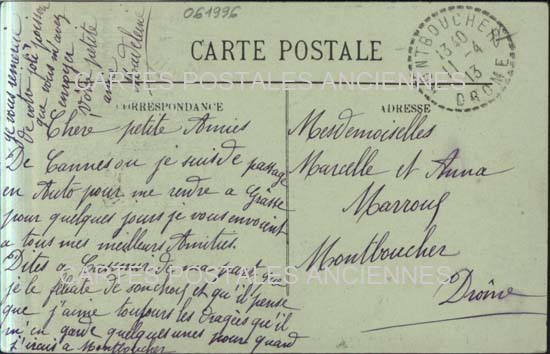 061996
CARTE POSTALE
CORRESPONDANCE
ADRESSE
MONTBOUCHER
13 40
11-4
13
DROME
CARTES POSTALES ANCIENNES
Chere petite Amies
De Cannes ou je suis de passage
en Auto pour me rendre a Grasse
pour quelques jours je vous envoient
a tous mes meilleurs Amities.
Dites a de ma part que
je le felicite de son choix et qu'il pense
que j'aime toujours les dragées qu'il
m'en garde quelques unes pour quand
j'irais a Montboucher
Je vous remercie
de votre joli poisson
que vous m'avez
envoyer
Votre petite
amie
Madeleine
Mesdemoiselles
Marcelle et Anna
Marroug
Montboucher
Drôme
CARTES POSTALES ANCIENNES